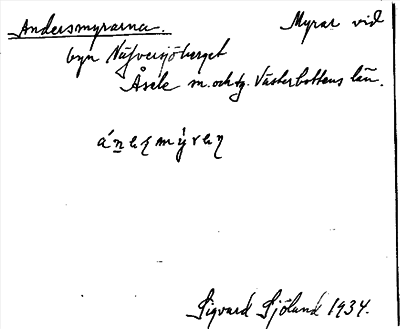 Andersmyrarna. Myrar vid
byn Näfversjöberget
Åsele m. och tg. Västerbottens län.
Sigvard Sjölund 1934.